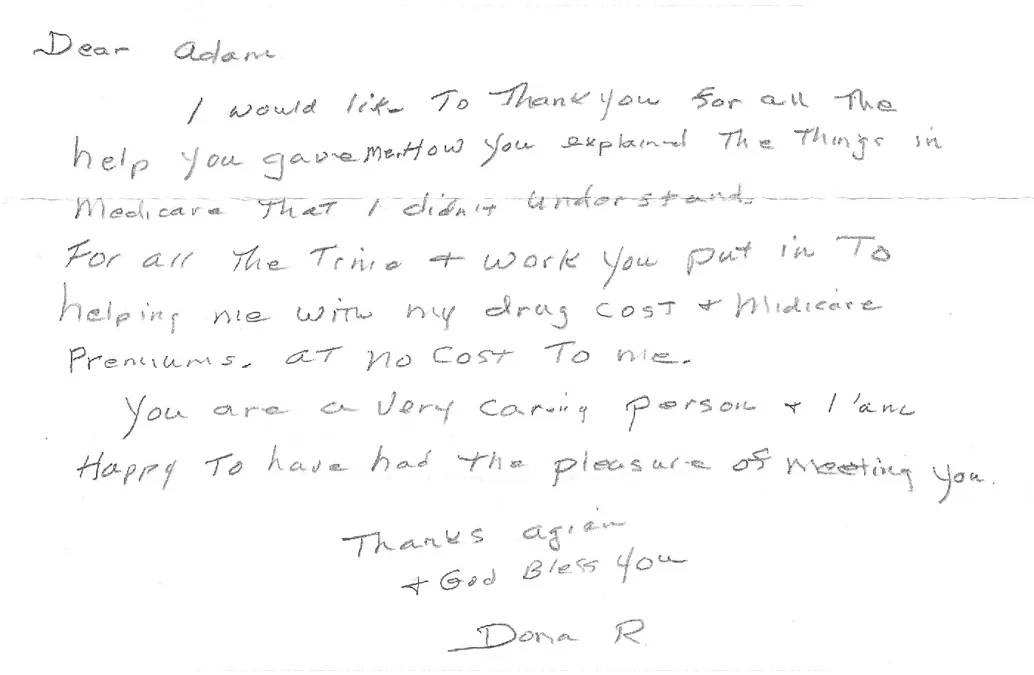 Dear Adam
I would like To Thank you for all The
help you gave me. How you explained The Things in
Medicare That I didn't understand.
For all The Time + work you put in To
helping me with my drug cost + Midicare
Premiums. AT no Cost To me.
You are a very caring person + I'am
Happy To have had the pleasure of meeting you.
Thanks agian
+ God Bless you
Dona R